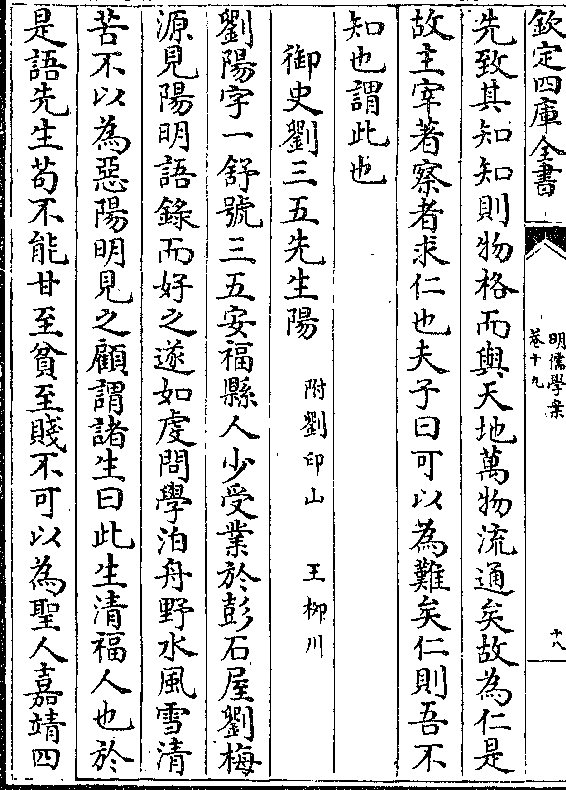 欽定四庫全書
明儒學案
卷十九
十八
先致其知知則物格而與天地萬物流通矣故為仁是
故主宰著察者求仁也夫子曰可以為難矣仁則吾不
知也謂此也
御史劉三五先生陽 附劉印山 王柳川
劉陽字一舒號三五安福縣人少受業於彭石屋劉梅
源見陽明語錄而好之遂如虔問學泊舟野水風雪清
苦不以為惡陽明見之顧謂諸生曰此生清福人也於
是語先生苟不能甘至貧至賤不可以為聖人嘉靖四